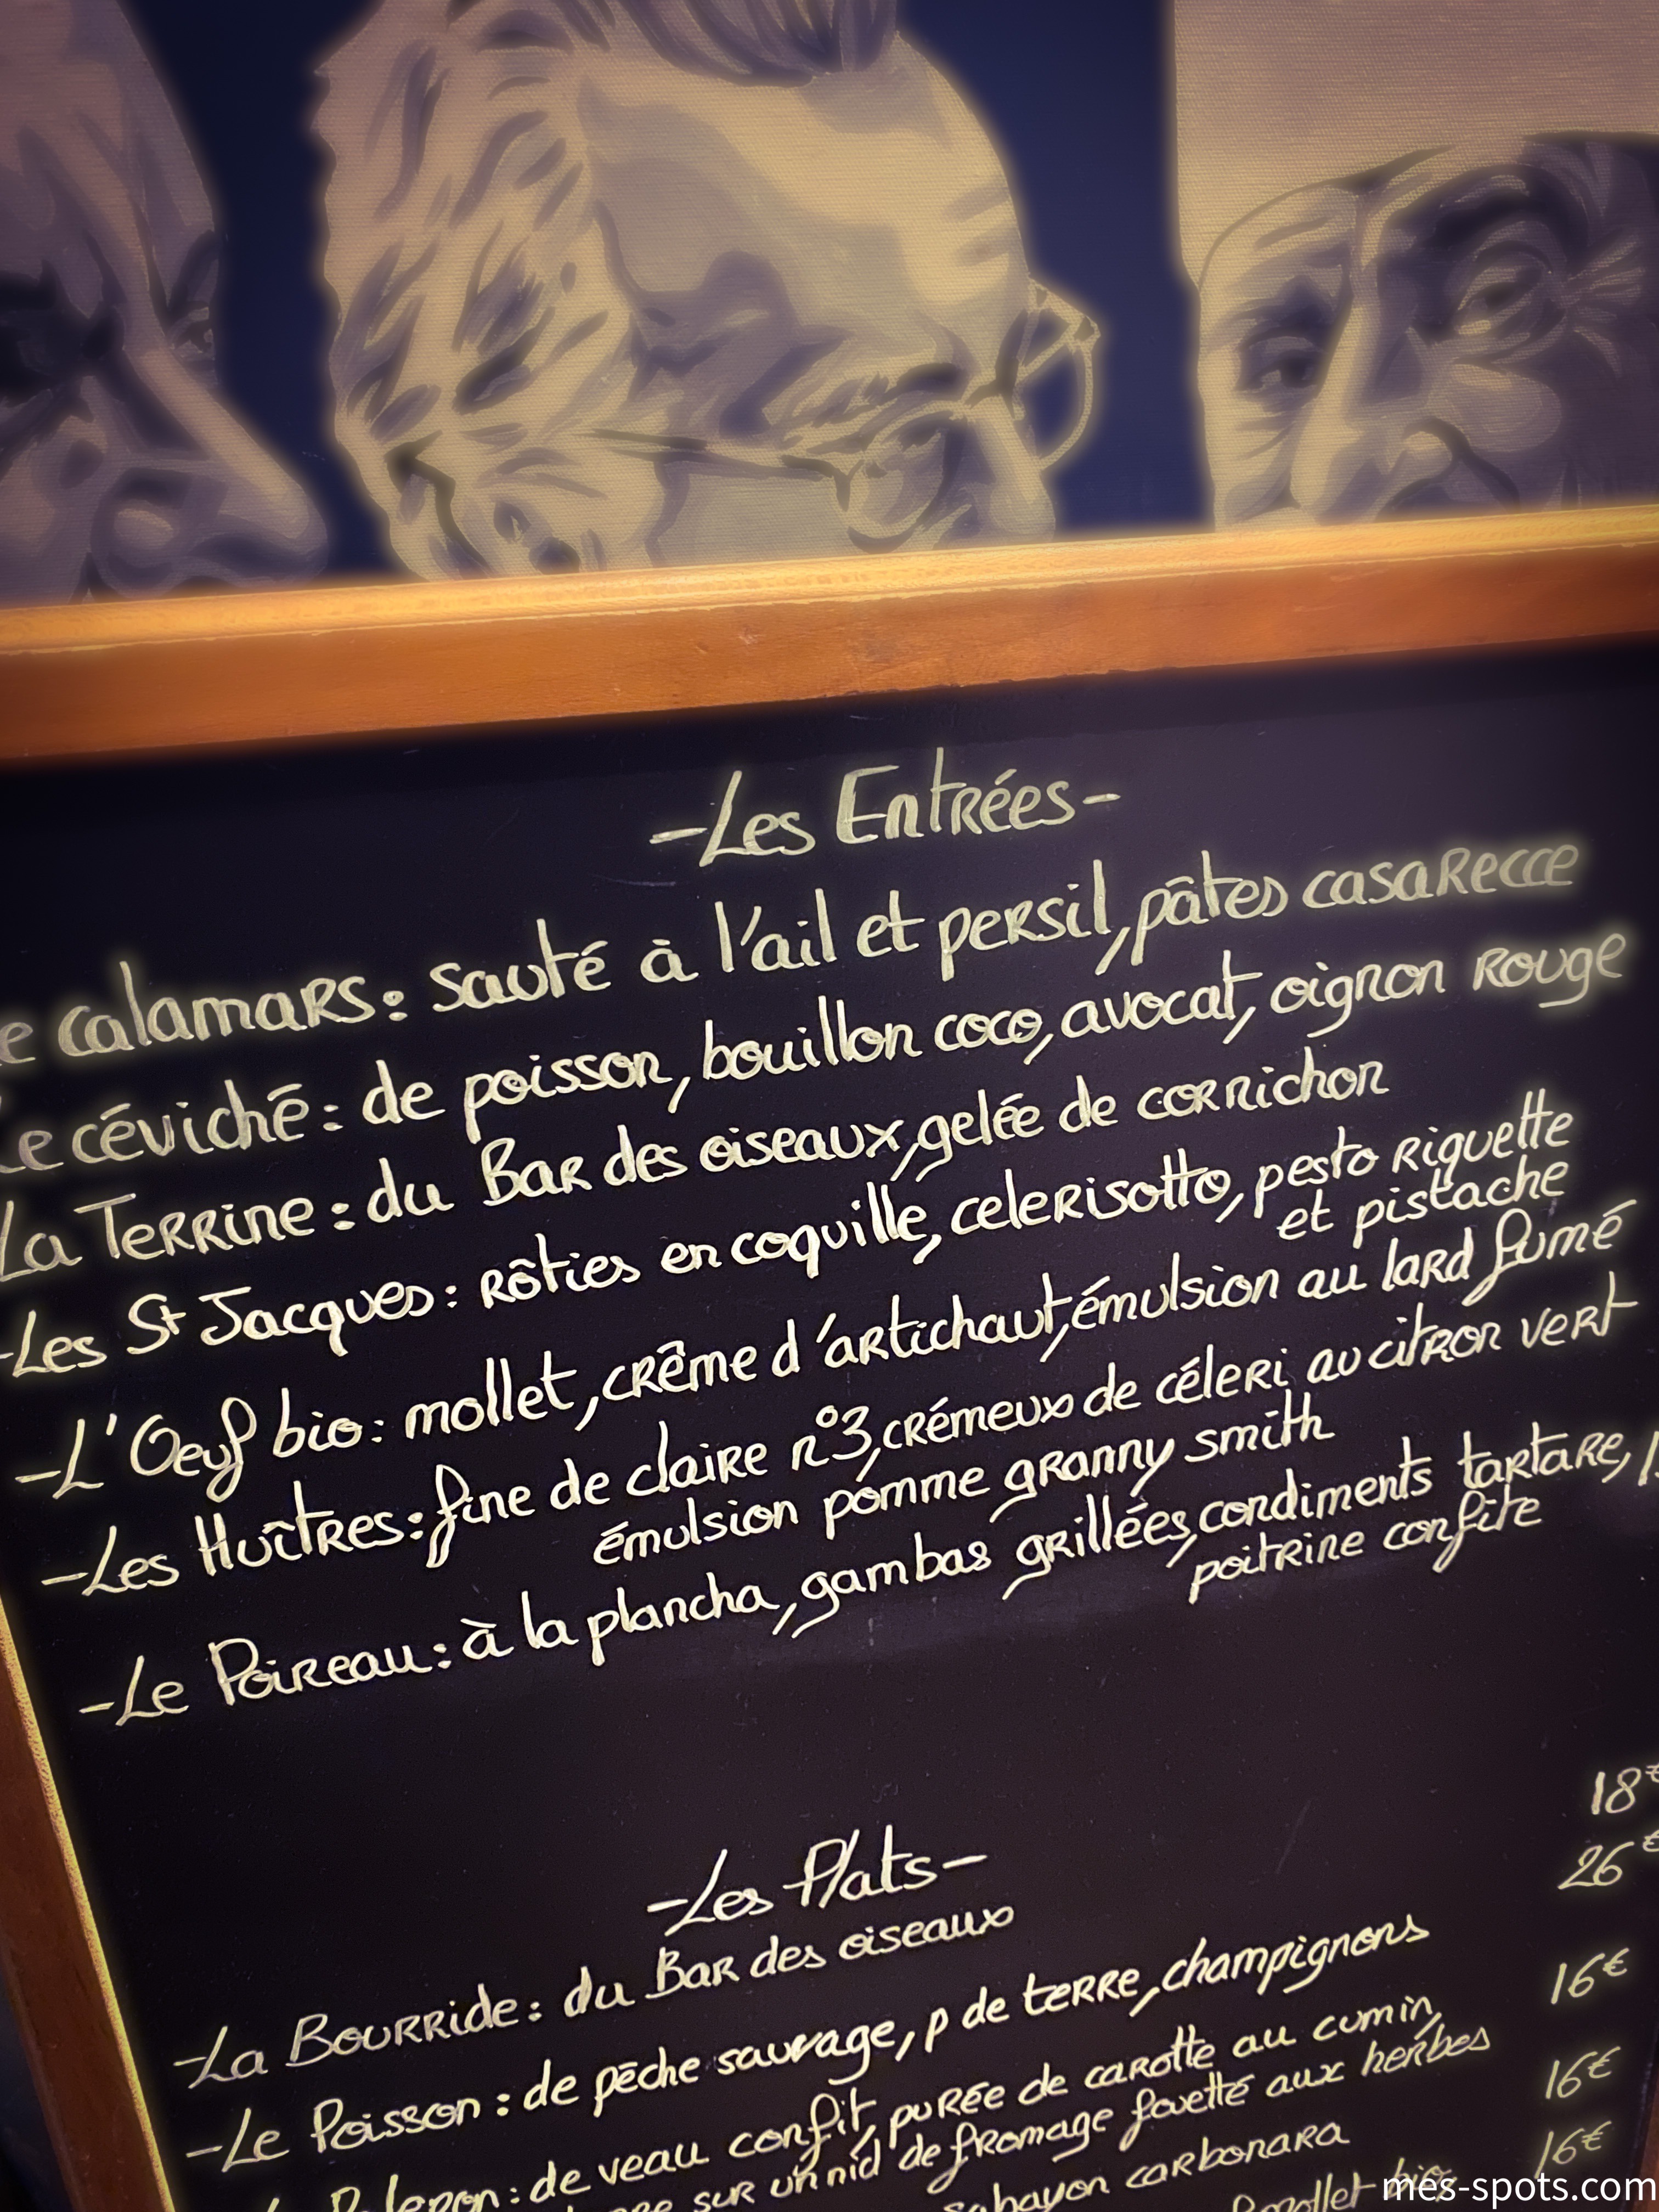 -Les Entrées-
calamars: sauté à l'ail et persil, pâtes casarecce
Le céviché: de poisson, bouillon coco, avocat, oignon rouge
La Terrine: du Bar des oiseaux, gelée de cornichon
-Les St Jacques: rôties en coquille, celerisotto, pesto riquette
et pistache
-L'Oeuf bio: mollet, crême d'artichaut, émulsion au lard fumé
-Les Huîtres: fine de claire n°3, crémeux de céleri au citron vert
émulsion pomme granny smith
-Le Poireau: à la plancha, gambas grillées, condiments tartare,
poitrine confite
-Les Plats-
-La Bourride: du Bar des oiseaux 18€
-Le Poisson: de pêche sauvage, p de terre, champignons 26€
de veau confit, purée de carotte au cumin, 16€
sur un nid de fromage fouetté aux herbes 16€
sabayon carbonara 16€
mollet bio
mes-spots.com